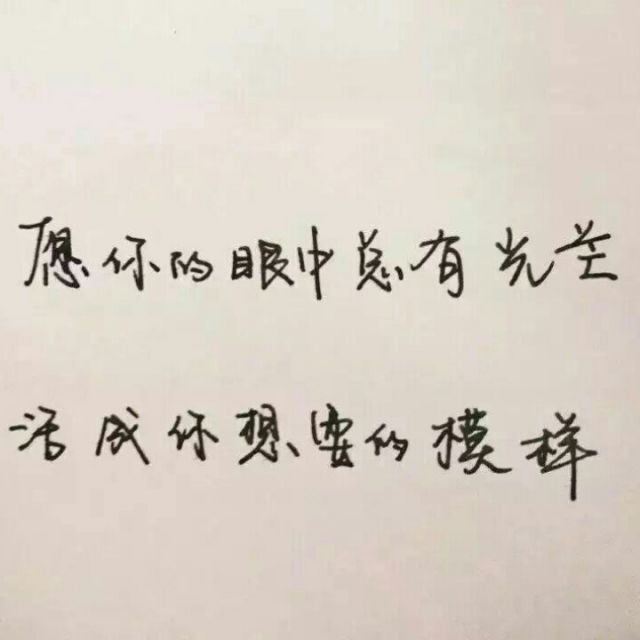 愿你的眼中总有光芒
活成你想要的模样